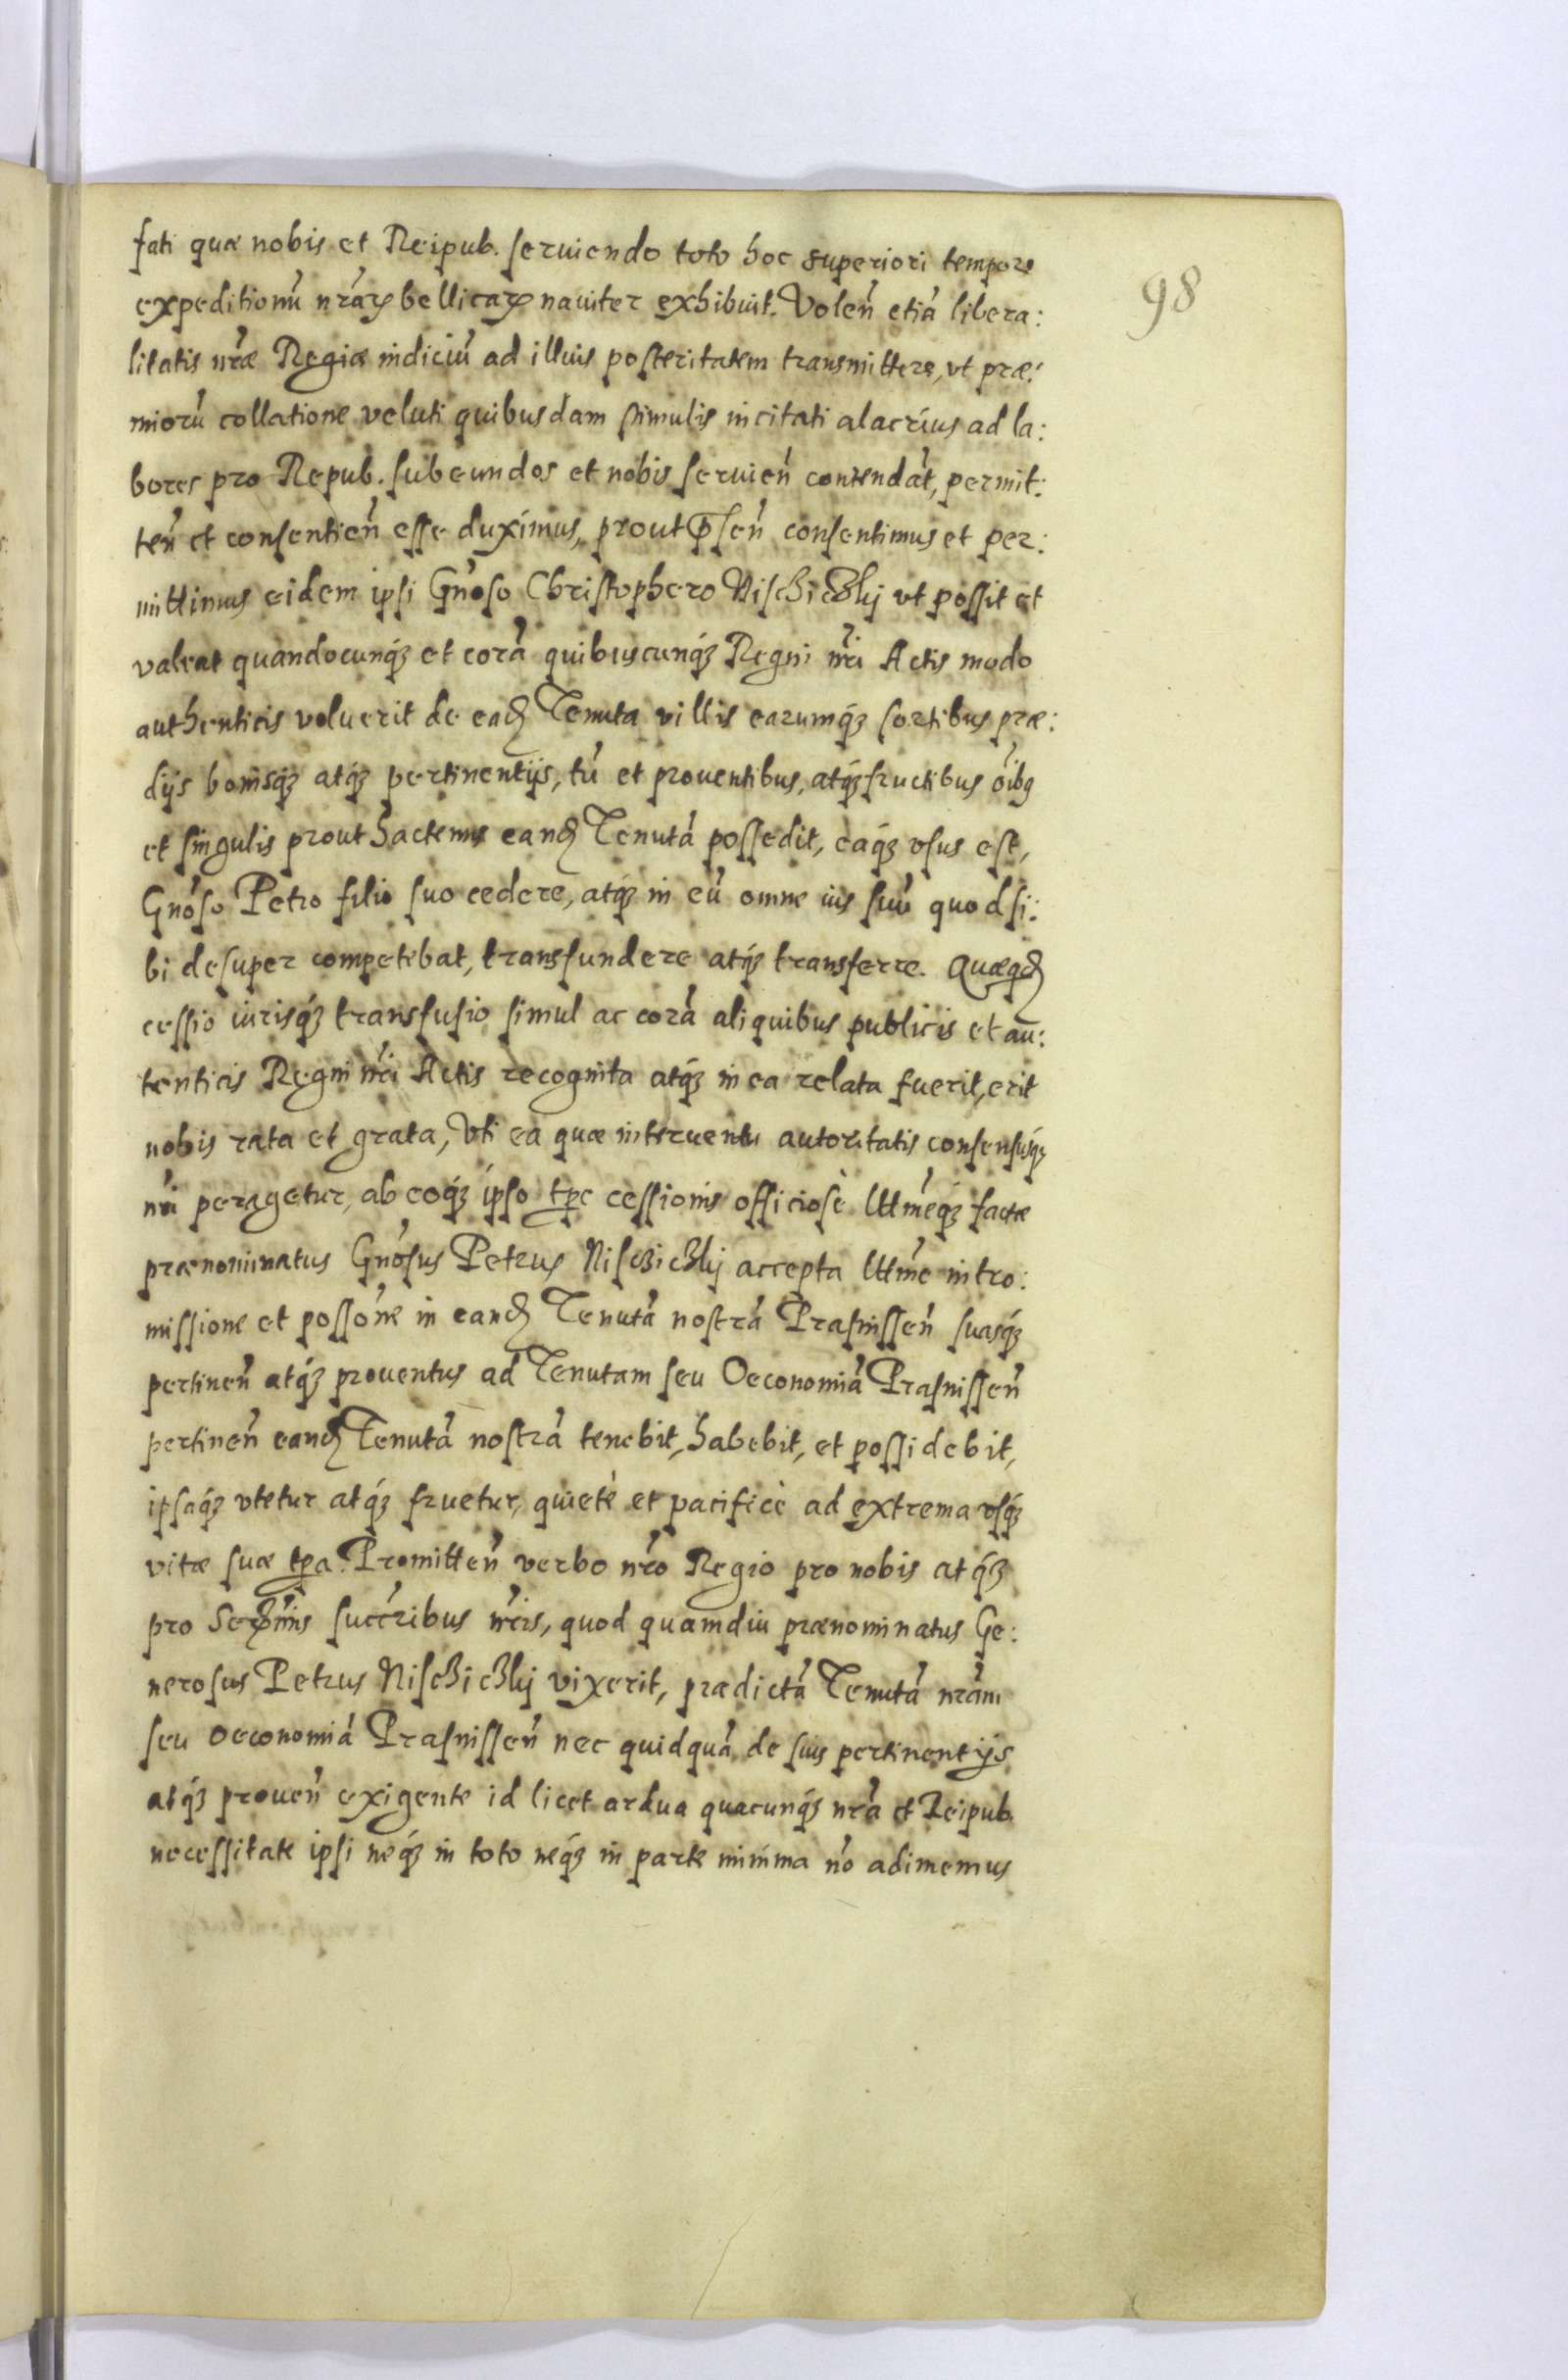 98
fati quæ nobis et Reipub. seruiendo toto hoc superiori tempore
expeditionũ nrãꝝ bellicaꝝ nauiter exhibuit. Volen̄ etiã libera:
litatis nr̃æ Regiæ indiciũ ad illius posteritatem transmittere, vt præ:
miorũ collatione veluti quibusdam stimulis incitati alacrius ad la:
bores pro Repub. subeundos et nobis seruien̄ contendãt, permit:
ten̄ et consentien̄ esse duximus, prout p̃sen̄ consentimus et per:
mittimus eidem ipsi Gnõso Christophero Niscziczkij vt possit et
valeat quandocunq́ꝫ et corã quibuscunq́ꝫ Regni nr̃i Actis modo
authenticis voluerit de eadꝫ Tenuta villis earumq́ꝫ sortibus præ:
dijs bonisq́ꝫ atq́ꝫ pertinentijs, tũ et prouentibus, atq́ꝫ fructibus oĩbꝫ
et singulis prout hactenus eandꝫ Tenutã possedit, eaq́ꝫ vsus est,
Gnõso Petro filio suo cedere, atq́ꝫ in eũ omne ius suũ quod si:
bi desuper competebat, transfundere atq́ꝫ transferre. Quæqdꝫ
cessio iurisq́ꝫ transfusio simul ac corã aliquibus publicis et au:
tenticis Regni nr̃i Actis recognita atq́ꝫ in ea relata fuerit, erit
nobis rata et grata, Vti ea quæ interuentu autoritatis consensusq́ꝫ
nri peragetur, ab eoq́ꝫ ipso tp̱e cessionis officiosè lttm̃eq́ꝫ factæ
prænominatus Gnõsus Petrus Nisczickij accepta lttm̃e intro:
missione et possõne in eandꝫ Tenutã nostrã Prasnissen̄ suasq́ꝫ
pertinen̄ atq́ꝫ prouentus ad Tenutam seu Oeconomiã Prasnissen̄
pertinen̄ eandꝫ Tenutã nostrã tenebit, habebit, et possidebit,
ipsaq́ꝫ vtetur atq́ꝫ fruetur, quietè et pacificè ad extrema vsq́ꝫ
vitæ suæ tp̱a. Promitten̄ verbo nr̃o Regio pro nobis atq́ꝫ
pro Serm̃is succr̃ibus nr̃is, quod quamdiu prænominatus Ge:
nerosus Petrus Nisczickij vixerit, prædictã Tenutã nrãm
seu oeconomiã Prasnissen̄ nec quidquã de suis pertinentijs
atq́ꝫ prouen̄ exigente id licet ardua quacunq́ꝫ nrã et Reipub.
necessitate ipsi neq́ꝫ in toto neq́ꝫ in parte minima nõ adimemus